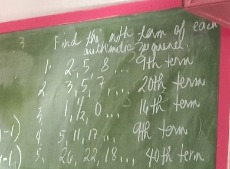 3 Find the nth term of each
arithmetic sequence.
1. 2, 5, 8 ... 9th term
2 3, 5, 7 ... 20th term
3 1, 1/2, 0 ... 16th term
4 5, 11, 17 ... 9th term
5. 26, 22, 18 ... 40th term